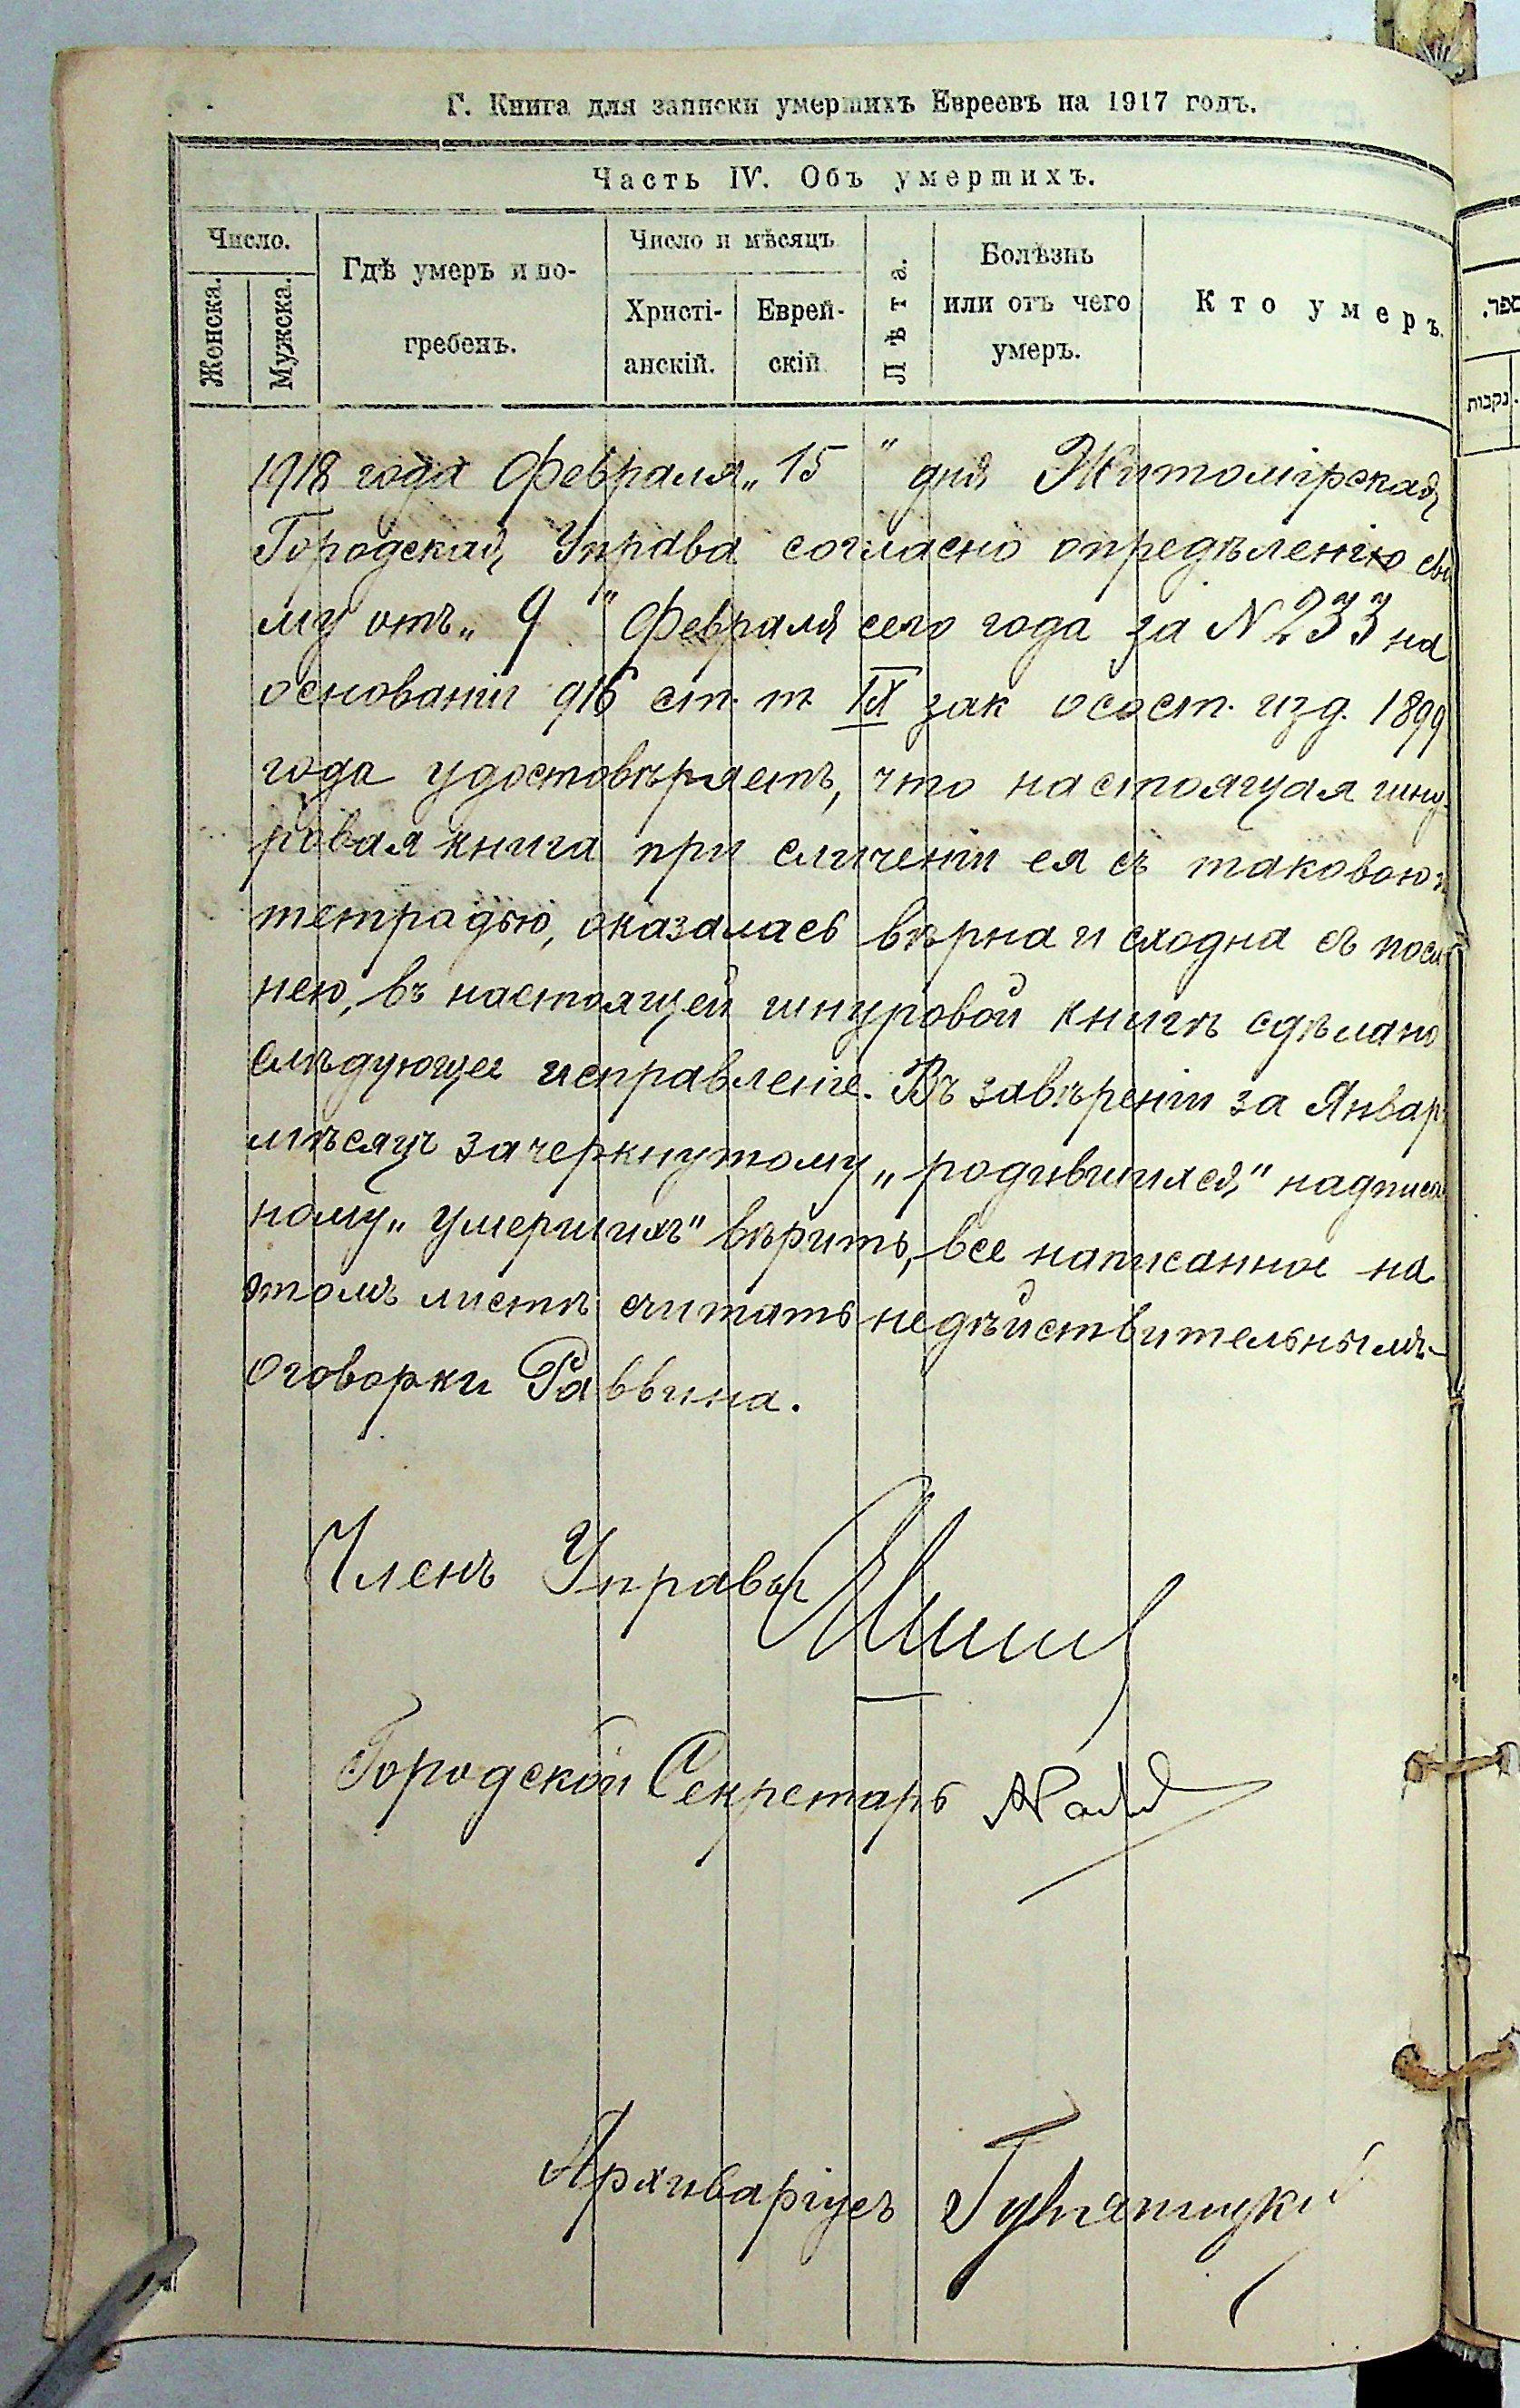 Г. Книга для записки умершихъ Евреевъ на 1917 годъ.
Часть IV. Объ умершихъ.
Число.
Женска.
Мужска.
Гдѣ умеръ и по-
гребенъ.
Число и мѣсяцъ
Христі-
анскій.
Еврей-
скій
Лѣта.
Болѣзнь
или отъ чего
умеръ.
Кто умеръ.
ספר.
נקבות
1918 года Февраля „15" дня Житомірская
Городская Управа согласно опредѣленію сво
му отъ „9" Февраля сего года за N 233 на
основаніи 916 ст. т. IX зак о сост. изд. 1899
года удостовѣряетъ, что настоящая шну-
ровая книга при сличеніи ея съ таковою
тетрадью, оказалась вѣрна и сходна съ посл
нею, въ настоящей шнуровой книгѣ сдѣлано
слѣдующее исправленіе. Въ завѣреніи за Январ
мѣсяцъ зачеркнутому „родившихся" надписа
ному „умершихъ" вѣрить, все написанное на
этомъ листѣ считать недѣйствительнымъ
оговорки Раввина.
Членъ Управы
Городской Секретарь
Архиваріусъ